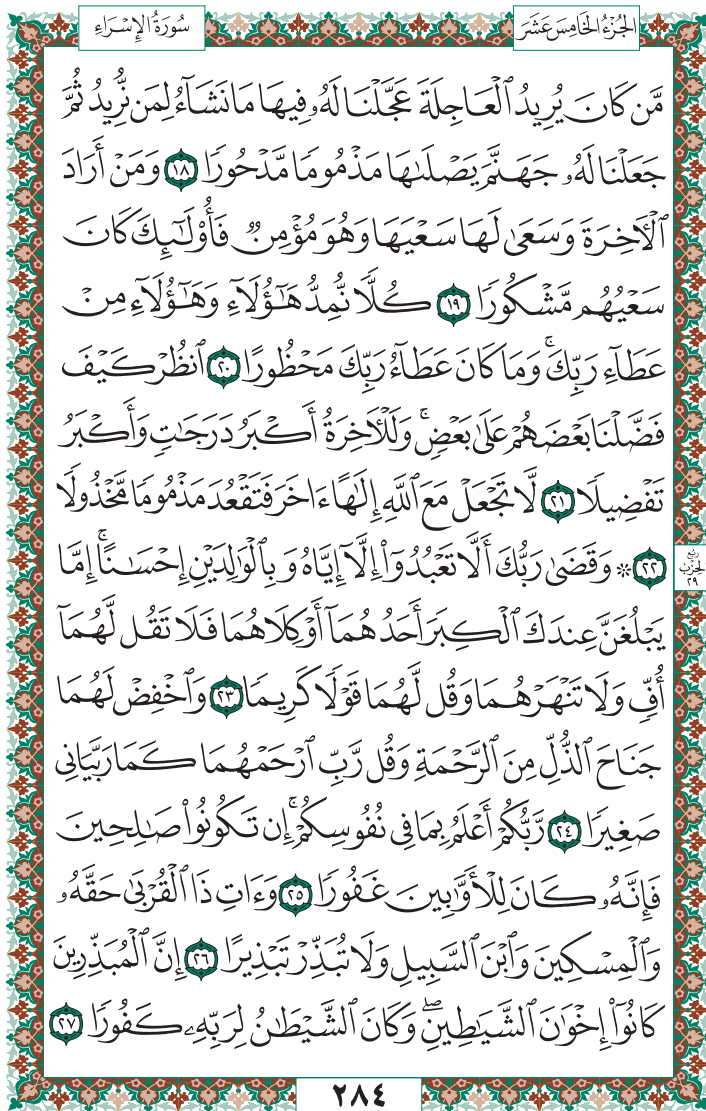 الجُزْءُ الخَامِسَ عَشَرَ
سُورَةُ الإِسْرَاءِ
مَّن كَانَ يُرِيدُ ٱلْعَاجِلَةَ عَجَّلْنَا لَهُۥ فِيهَا مَا نَشَآءُ لِمَن نُّرِيدُ ثُمَّ
جَعَلْنَا لَهُۥ جَهَنَّمَ يَصْلَىٰهَا مَذْمُومًا مَّدْحُورًا ١٨ وَمَنْ أَرَادَ
ٱلْأَخِرَةَ وَسَعَىٰ لَهَا سَعْيَهَا وَهُوَ مُؤْمِنٌ فَأُوْلَـٰٓئِكَ كَانَ
سَعْيُهُم مَّشْكُورًا ١٩ كُلًّا نُّمِدُّ هَـٰٓؤُلَآءِ وَهَـٰٓؤُلَآءِ مِنْ
عَطَآءِ رَبِّكَۚ وَمَا كَانَ عَطَآءُ رَبِّكَ مَحْظُورًا ٢٠ ٱنظُرْ كَيْفَ
فَضَّلْنَا بَعْضَهُمْ عَلَىٰ بَعْضٍۚ وَلَلْأَخِرَةُ أَكْبَرُ دَرَجَـٰتٍ وَأَكْبَرُ
تَفْضِيلًا ٢١ لَّا تَجْعَلْ مَعَ ٱللَّهِ إِلَـٰهًا ءَاخَرَ فَتَقْعُدَ مَذْمُومًا مَّخْذُولًا
٢٢ ۞ وَقَضَىٰ رَبُّكَ أَلَّا تَعْبُدُوٓاْ إِلَّآ إِيَّاهُ وَبِٱلْوَٰلِدَيْنِ إِحْسَـٰنًاۚ إِمَّا
ربع
الحزب
٢٩
يَبْلُغَنَّ عِندَكَ ٱلْكِبَرَ أَحَدُهُمَآ أَوْ كِلَاهُمَا فَلَا تَقُل لَّهُمَآ
أُفٍّ وَلَا تَنْهَرْهُمَا وَقُل لَّهُمَا قَوْلًا كَرِيمًا ٢٣ وَٱخْفِضْ لَهُمَا
جَنَاحَ ٱلذُّلِّ مِنَ ٱلرَّحْمَةِ وَقُل رَّبِّ ٱرْحَمْهُمَا كَمَا رَبَّيَانِى
صَغِيرًا ٢٤ رَّبُّكُمْ أَعْلَمُ بِمَا فِى نُفُوسِكُمْۚ إِن تَكُونُواْ صَـٰلِحِينَ
فَإِنَّهُۥ كَانَ لِلْأَوَّٰبِينَ غَفُورًا ٢٥ وَءَاتِ ذَا ٱلْقُرْبَىٰ حَقَّهُۥ
وَٱلْمِسْكِينَ وَٱبْنَ ٱلسَّبِيلِ وَلَا تُبَذِّرْ تَبْذِيرًا ٢٦ إِنَّ ٱلْمُبَذِّرِينَ
كَانُوٓاْ إِخْوَٰنَ ٱلشَّيَـٰطِينِۖ وَكَانَ ٱلشَّيْطَـٰنُ لِرَبِّهِۦ كَفُورًا ٢٧
٢٨٤